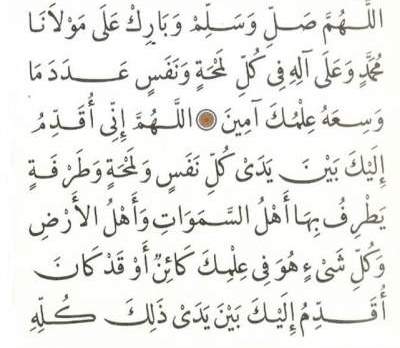 اللَّهُمَّ صَلِّ وَسَلِّمْ وَبَارِكْ عَلَى مَوْلَانَا
مُحَمَّدٍ وَعَلَى آلِهِ فِى كُلِّ لَمْحَةٍ وَنَفَسٍ عَدَدَ مَا
وَسِعَهُ عِلْمُكَ آمِينَ اللَّهُمَّ إِنِّى أُقَدِّمُ
إِلَيْكَ بَيْنَ يَدَىْ كُلِّ نَفَسٍ وَلَمْحَةٍ وَطَرْفَةٍ
يَطْرِفُ بِهَا أَهْلُ السَّمَوَاتِ وَأَهْلُ الأَرْضِ
وَكُلِّ شَىْءٍ هُوَ فِى عِلْمِكَ كَائِنٌ أَوْ قَدْ كَانَ
أُقَدِّمُ إِلَيْكَ بَيْنَ يَدَىْ ذَلِكَ كُلِّهِ